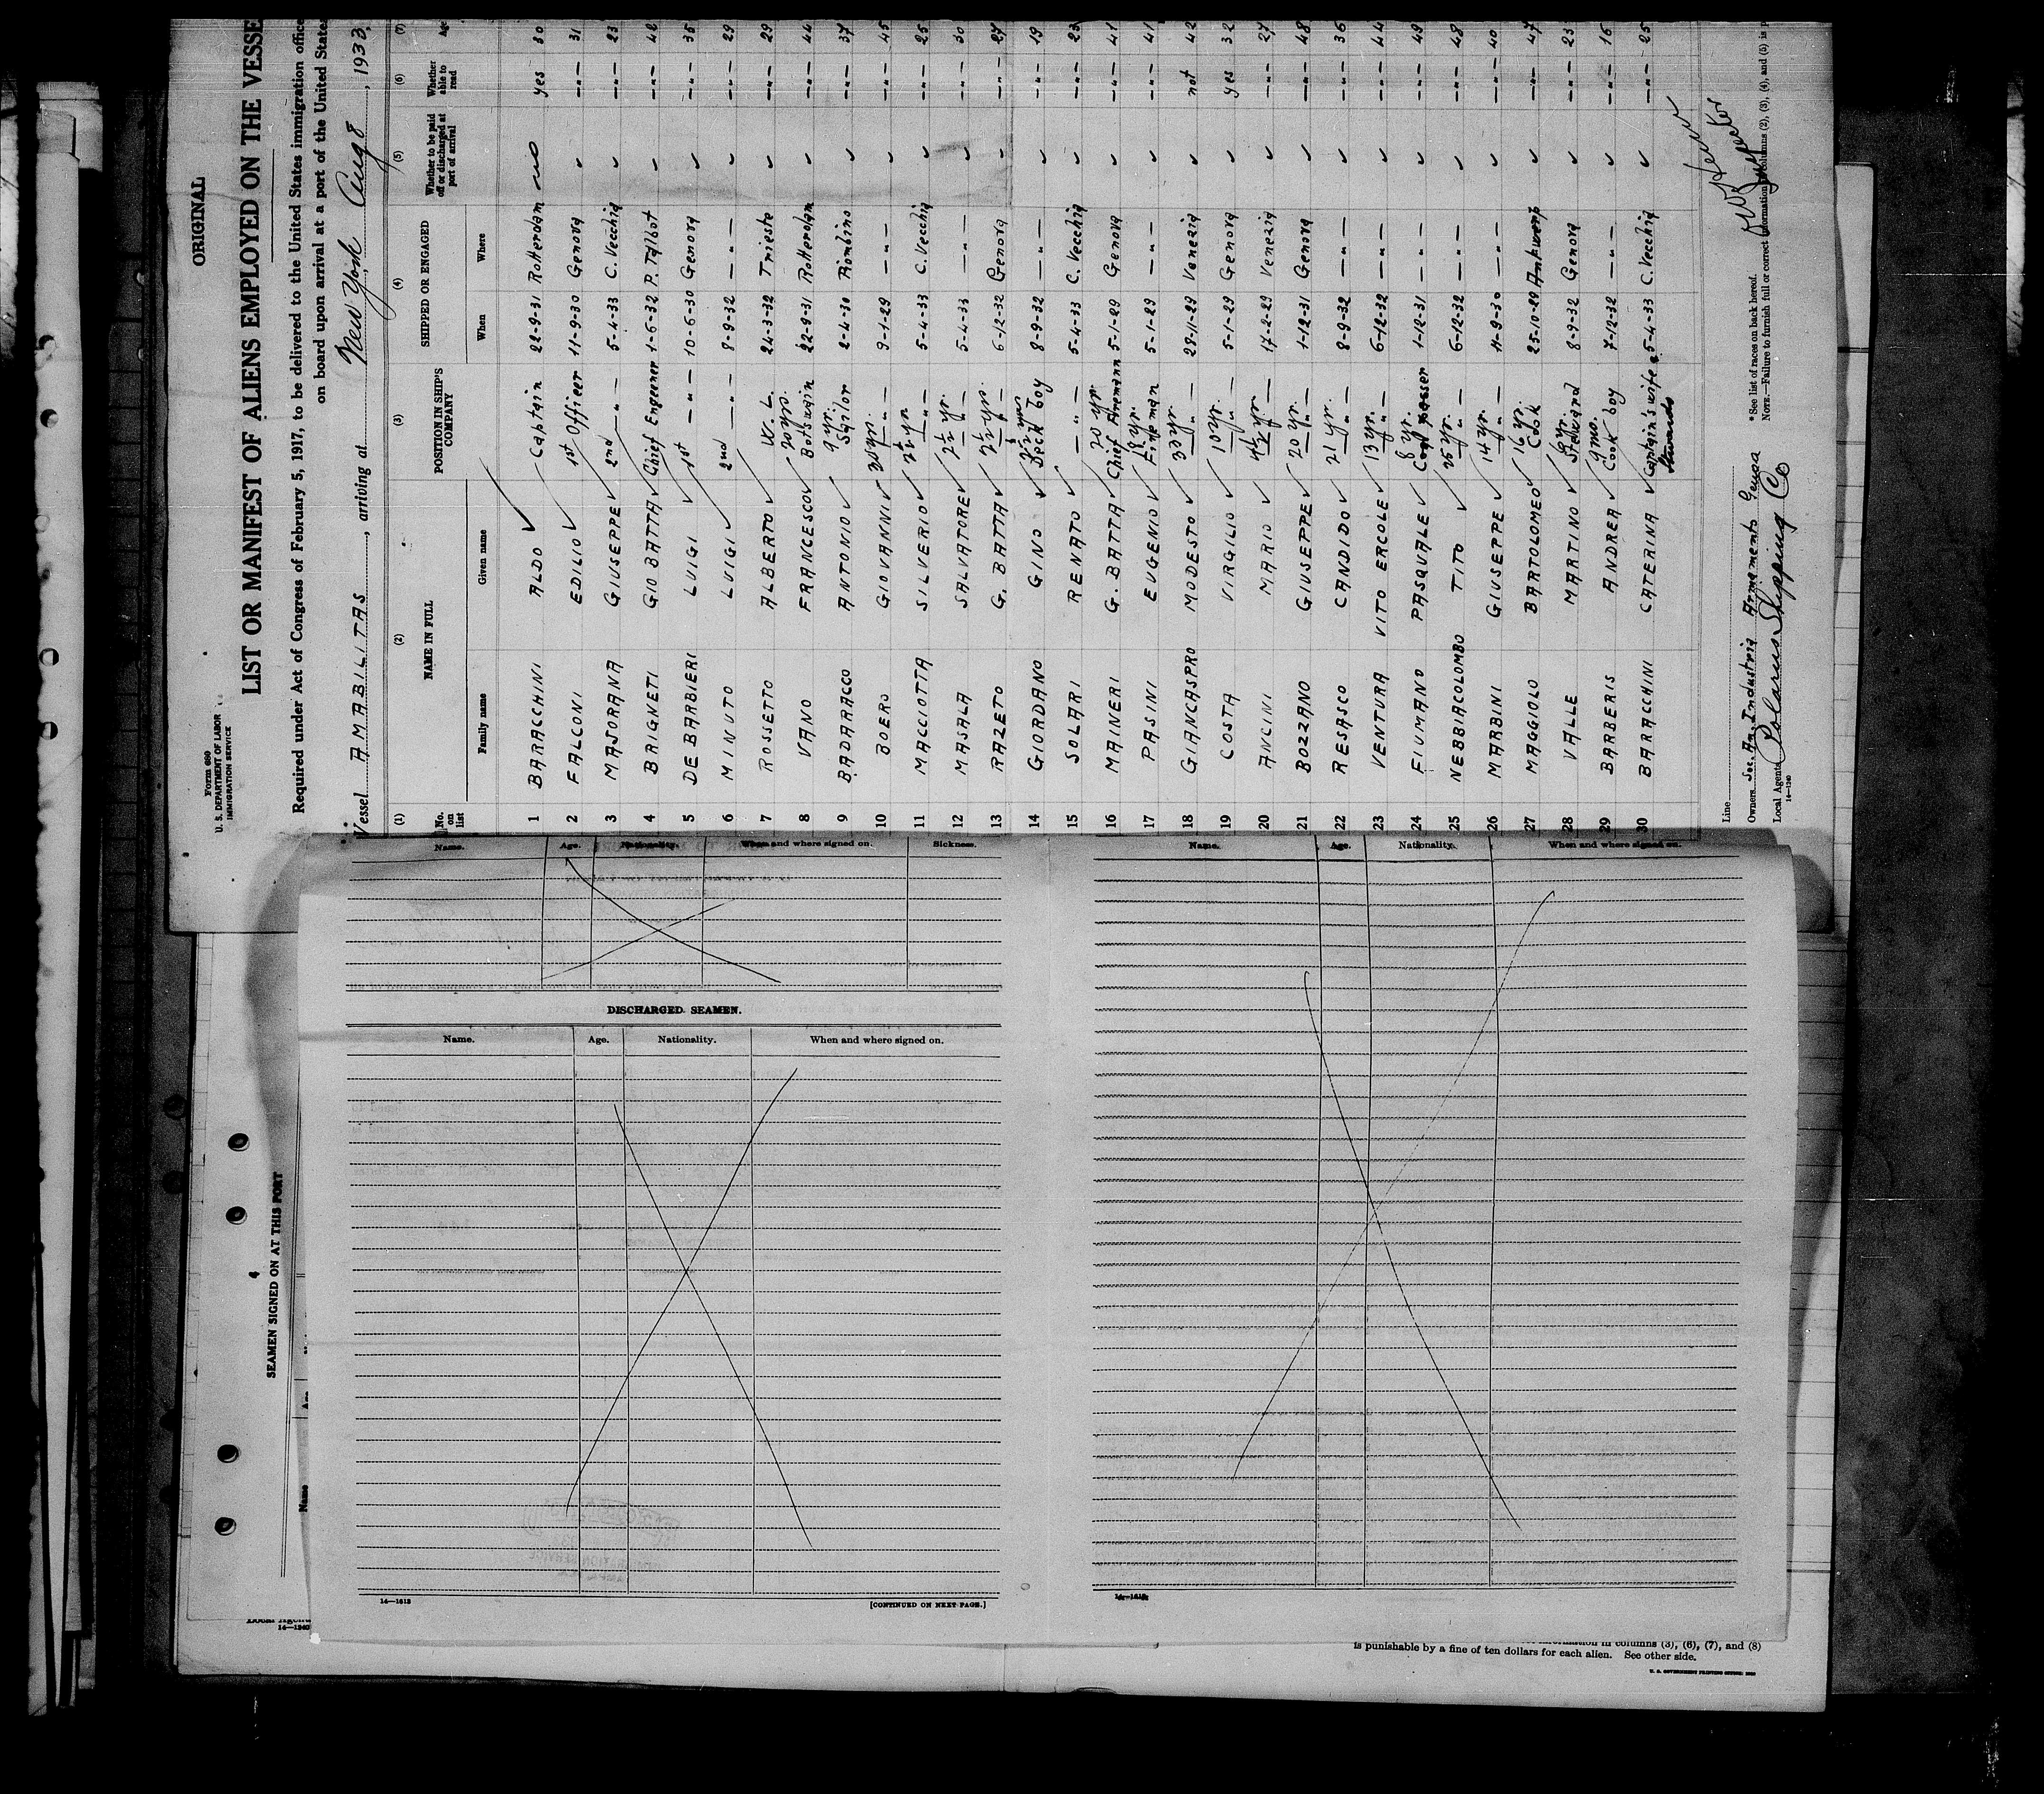 ORIGINAL
Form 680
U. S. DEPARTMENT OF LABOR
IMMIGRATION SERVICE
LIST OR MANIFEST OF ALIENS EMPLOYED ON THE VESSE
Required under Act of Congress of February 5, 1917, to be delivered to the United States immigration offic
on board upon arrival at a port of the United State
Vessel AMABILITAS, arriving at New York Aug 8, 1933,
(1) (2) (3) (4) (5) (6) (7)
No. on list NAME IN FULL POSITION IN SHIP'S COMPANY SHIPPED OR ENGAGED Whether to be paid off or discharged at port of arrival Whether able to read Ag
Family name Given name When Where
1 BARACCHINI ALDO Captain 22-9-31 Rotterdam no yes 30
2 FALCONI EDILIO ✓ 1st Officer 11-9-30 Genova ✓ —"— 31
3 MAJORANA GIUSEPPE ✓ 2nd —"— 5-4-33 C. Vecchia ✓ —"— 23
4 BRIGNETI GIO BATTA ✓ Chief Engeneer 1-6-32 P. Talbot ✓ —"— 42
5 DE BARBIERI LUIGI ✓ 1st —"— 10-6-30 Genova ✓ —"— 35
6 MINUTO LUIGI ✓ 2nd —"— 8-9-32 —"— ✓ —"— 29
7 ROSSETTO ALBERTO ✓ W. L. 24-3-32 Trieste ✓ —"— 29
8 VANO FRANCESCO ✓ 20 yrs. Botswain 22-9-31 Rotterdam ✓ —"— 44
9 BADARACCO ANTONIO ✓ 9 yr. Sailor 2-4-30 Piombino ✓ —"— 37
10 BOERO GIOVANNI ✓ 30 yr. —"— 9-1-29 —"— ✓ —"— 45
11 MACCIOTTA SILVERIO ✓ 2½ yr. —"— 5-4-33 C. Vecchia ✓ —"— 25
12 MASALA SALVATORE ✓ 2½ yr. —"— 5-4-33 —"— ✓ —"— 30
13 RAZETO G. BATTA ✓ 2½ yrs. —"— 6-12-32 Genova ✓ —"— 27
14 GIORDANO GINO ✓ Deck boy 8-9-32 —"— ✓ —"— 19
15 SOLARI RENATO ✓ —"— 5-4-33 C. Vecchia ✓ —"— 23
16 MAINERI G. BATTA ✓ 20 yr. Chief Firemann 5-1-29 Genova ✓ —"— 41
17 PASINI EUGENIO ✓ 18 yr. Fireman 5-1-29 —"— ✓ —"— 41
18 GIANCASPRO MODESTO ✓ 33 yr. —"— 29-11-29 Venezia ✓ not 42
19 COSTA VIRGILIO ✓ 10 yr. —"— 5-1-29 Genova ✓ yes 32
20 ANCINI MARIO ✓ 4½ yr. —"— 17-2-29 Venezia ✓ —"— 27
21 BOZZANO GIUSEPPE ✓ 20 yr. —"— 1-12-31 Genova ✓ —"— 48
22 RESASCO CANDIDO ✓ 21 yr. —"— 8-9-32 —"— ✓ —"— 36
23 VENTURA VITO ERCOLE ✓ 13 yr. —"— 6-12-32 —"— ✓ —"— 44
24 FIUMANO PASQUALE ✓ 8 yr. Coal passer 1-12-31 —"— ✓ —"— 49
25 NEBBIACOLOMBO TITO ✓ 25 yr. —"— 6-12-32 —"— ✓ —"— 48
26 MARBINI GIUSEPPE ✓ 14 yr. —"— 11-9-30 —"— ✓ —"— 40
27 MAGGIOLO BARTOLOMEO ✓ 16 yr. Cook 25-10-29 Antwerp ✓ —"— 47
28 VALLE MARTINO ✓ Steward 8-9-32 Genova ✓ —"— 23
29 BARBERIS ANDREA ✓ 9 mo. Cook boy 7-12-32 —"— ✓ —"— 16
30 BARACCHINI CATERINA ✓ Captain's wife 5-4-33 C. Vecchia ✓ —"— 25
Line
Owners Soc. An. Industria Armamento Genoa
Local Agents Polarus Shipping Co
14—1240
* See list of races on back hereof.
NOTE.—Failure to furnish full or correct information in columns (2), (3), (4), and (5) is p
Name. Age. Nationality. When and where signed on. Sickness.
DISCHARGED SEAMEN.
Name. Age. Nationality. When and where signed on.
14—1613
[CONTINUED ON NEXT PAGE.]
Name. Age. Nationality. When and where signed on.
14—1613
4
SEAMEN SIGNED ON AT THIS PORT
Name Age
14—1240
information in columns (3), (6), (7), and (8)
is punishable by a fine of ten dollars for each alien. See other side.
U. S. GOVERNMENT PRINTING OFFICE: